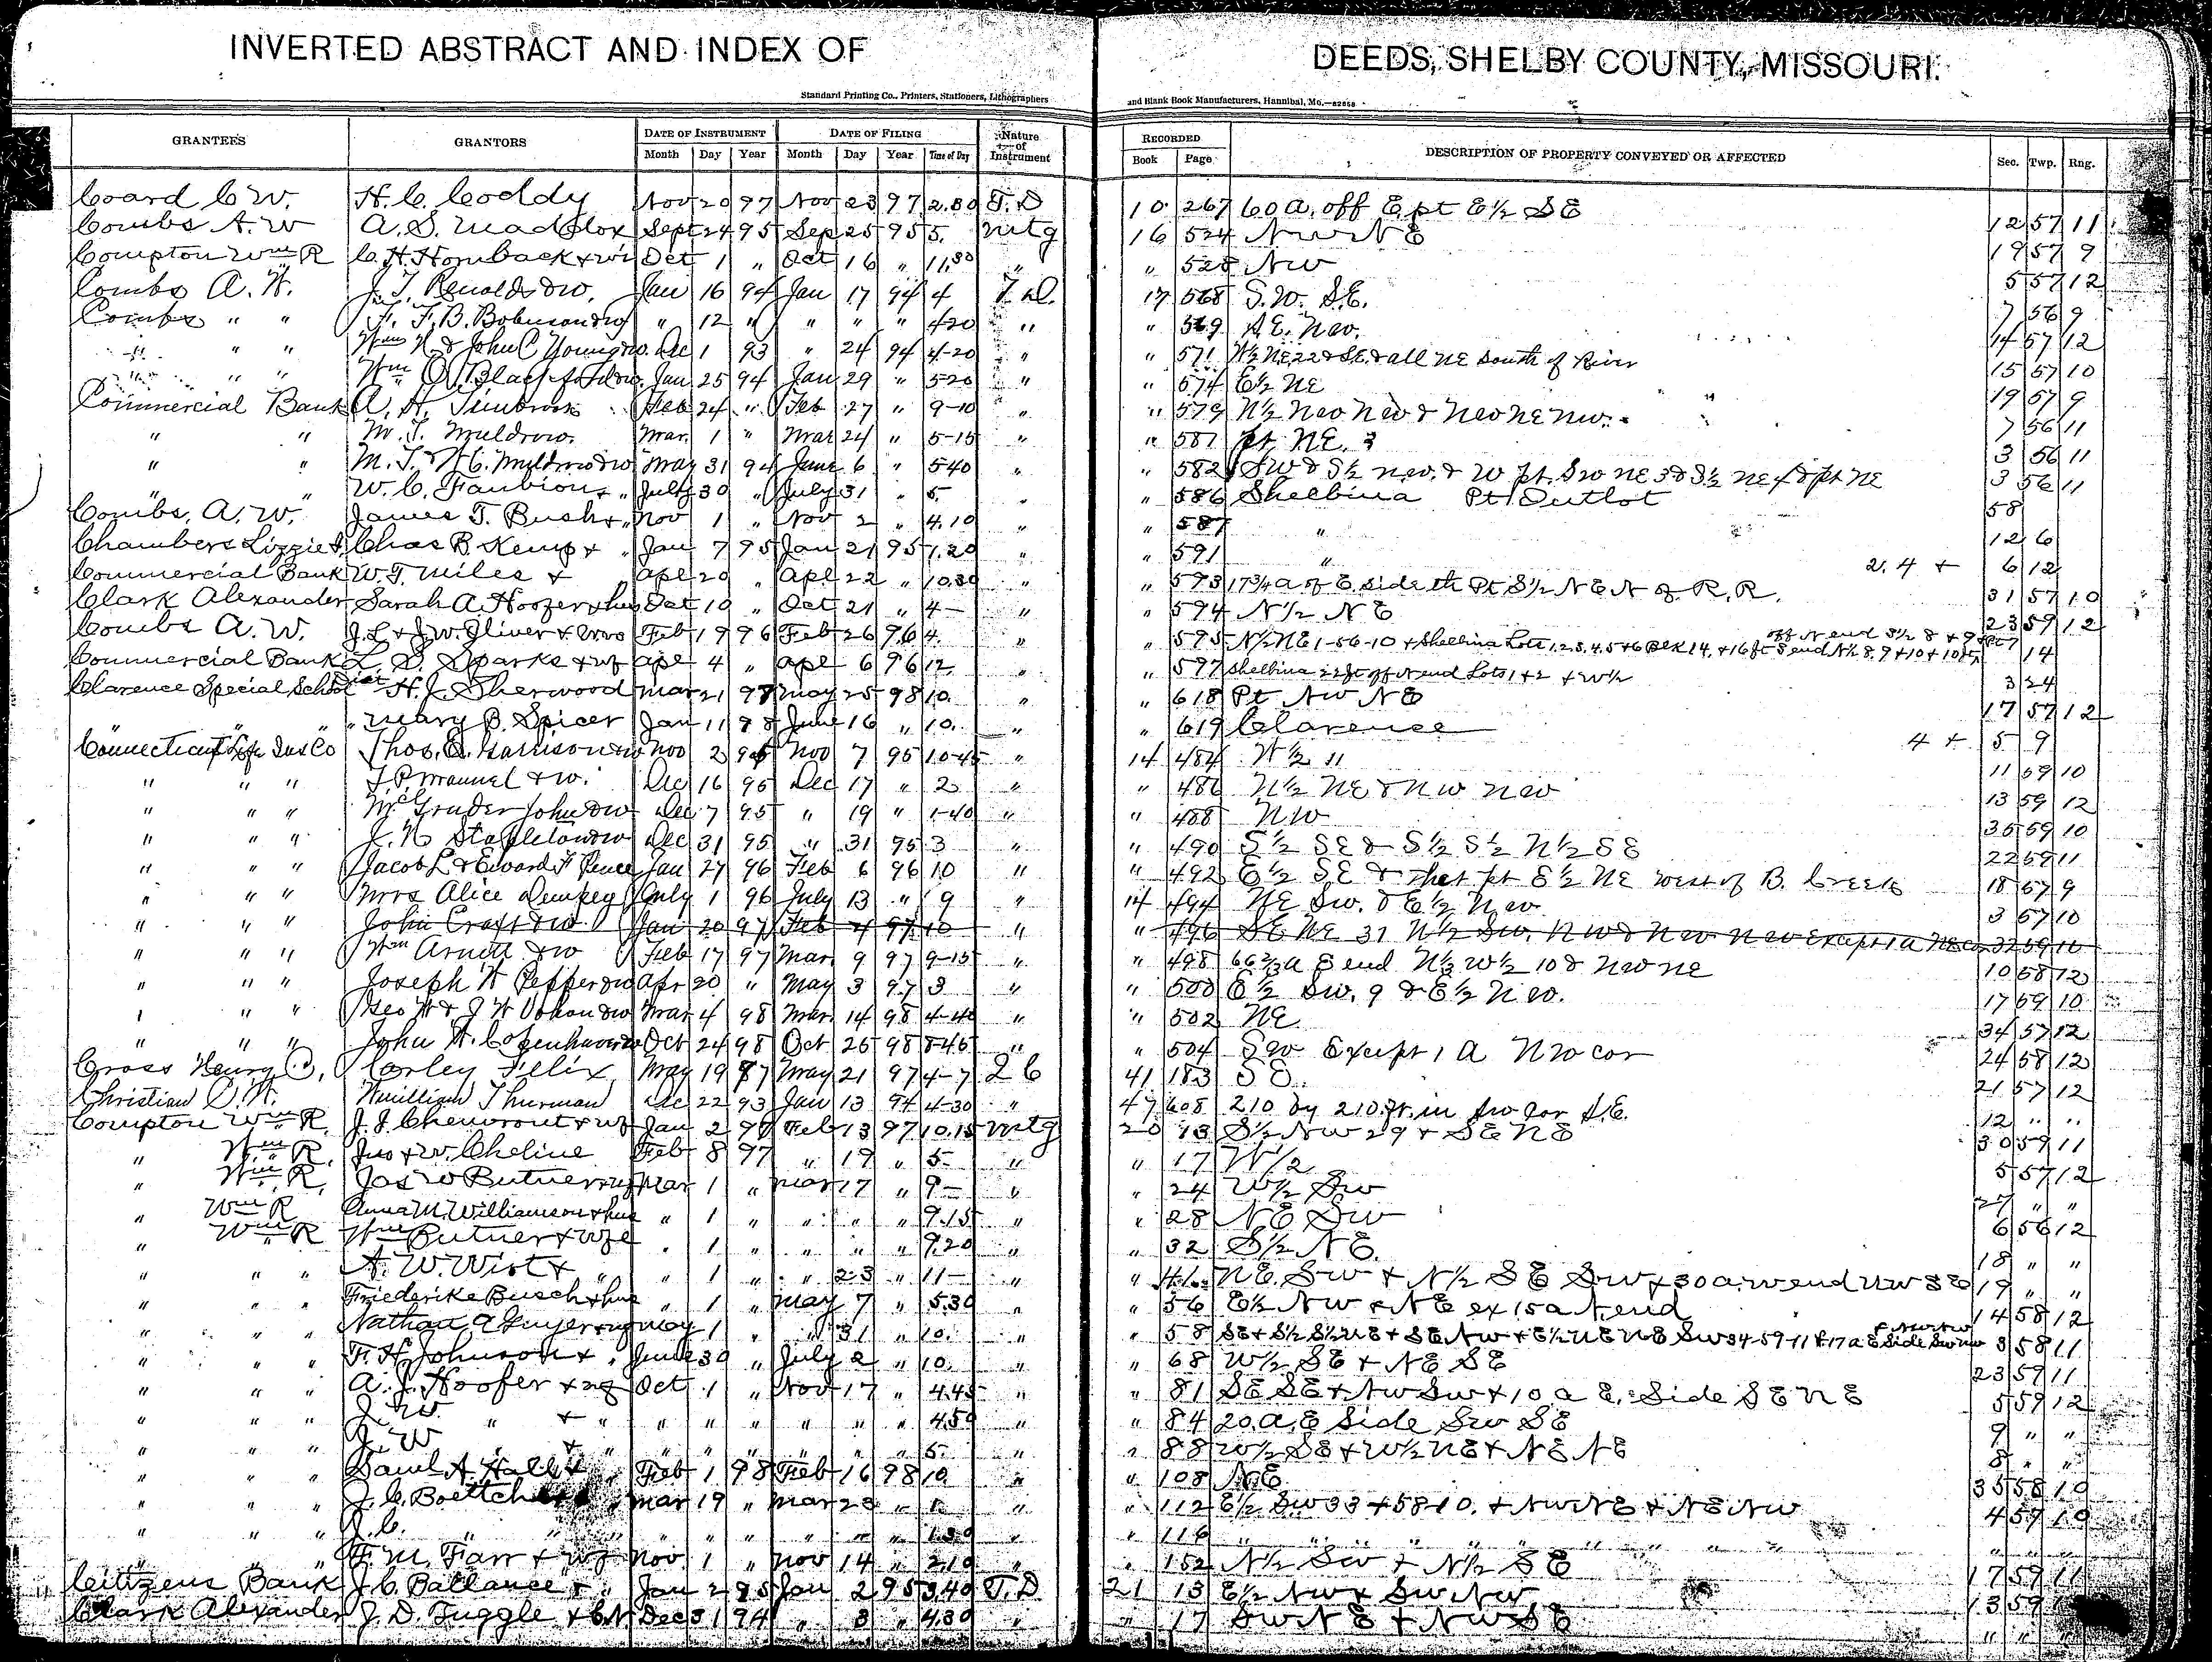 INVERTED ABSTRACT AND INDEX OF DEEDS, SHELBY COUNTY, MISSOURI.
Standard Printing Co., Printers, Stationers, Lithographers and Blank Book Manufacturers, Hannibal, Mo.—82858
GRANTEES GRANTORS DATE OF INSTRUMENT DATE OF FILING Nature of Instrument RECORDED DESCRIPTION OF PROPERTY CONVEYED OR AFFECTED Sec. Twp. Rng.
Month Day Year Month Day Year Time of Day Book Page
Coard C W. H. C. Coddy Nov 20 97 Nov 23 97 2.30 T. D 10 267 60 a. off E pt E½ SE 12 57 11
Combs A. W A. S. Maddox Sept 24 95 Sep 25 95 5. Mtg 16 524 NW NE 19 57 9
Compton Wm R C. H. Hornback & wi Oct 1 " Oct 16 " 11.30 " " 528 NW 5 57 12
Combs A. W. J. T. Renolds & w. Jan 16 94 Jan 17 94 4 T. D. 17 568 S.W. S.E. 7 56 9
Combs " " F. B. & w " 12 " " " " 4 20 " " 569 S.E. NW. 14 57 12
" " " Wm N. & John C Young & w. Dec 1 93 " 24 94 4-20 " " 571 W½ NE 22 & SE & all NE South of River 15 57 10
" " " Wm & w. Jan 25 94 Jan 29 " 5-20 " " 574 E½ NE 19 57 9
Commercial Bank A. H. Timbrook Feb 24 " Feb 27 " 9-10 " " 579 N½ NW NW & NW NE NW. 7 56 11
" " M. T. Muldrow. Mar. 1 " Mar 24 " 5-15 " " 581 pt. NE. 3 3 56 11
" " M. T. & H C. Muldrow & w May 31 94 June 6 " 5 40 " " 582 SW & S½ NW. & W pt. SW NE 3 & S½ NE & pt NE 3 56 11
" " W. C. Faubion & " July 30 " July 31 " 5 " " 586 Shelbina Pt Outlot 58
Combs, A. W. James T. Bush & " Nov 1 " Nov 2 " 4.10 " " 587 " 12 6
Chambers Lizzie Chas B. Kemp & " Jan 7 95 Jan 21 95 1.20 " " 591 " 2. 4 + 6 12
Commercial Bank W. T. Miles & Apl 20 " Apl 22 " 10.30 " " 593 17¾ a of E. side th Pt S½ NE N of R. R. 31 57 10
Clark Alexander Sarah A. Hoozer & hus Oct 10 " Oct 21 " 4— " " 594 N½ NE 23 59 12
Combs A. W. J. L & J. W. Oliver & wvs Feb 19 96 Feb 26 96 4. " " 595 N½ NE 1-56-10 + Shelbina Lots 1, 2, 3, 4, 5 + 6 Blk 14, + 16 ft S end N½ 8. 9 + 10 14
Commercial Bank L. S. Sparks & wf Apl 4 " Apl 6 96 12 " " 597 Shelbina 22 ft off N end Lots 1 + 2 + W½ 3 24
Clarence Special School Dist H. J. Sherwood Mar 21 98 May 25 98 10. " " 618 Pt NW NE 17 57 12
" " " Mary B. Spicer Jan 11 98 June 16 " 10. " " 619 Clarence 4 + 5 9
Connecticut Life Ins Co Thos. Q. Harrison & w Nov 2 95 Nov 7 95 10-45 " 14 484 W½ 11 11 59 10
" " " J. P. Maunel & w. Dec 16 95 Dec 17 " 2 " " 486 N½ NE & NW NW 13 59 12
" " " McGruder John & w Dec 7 95 " 19 " 1-40 " " 488 NW 35 59 10
" " " J. N. Stapleton & w Dec 31 95 " 31 95 3 " " 490 S½ SE & S½ S½ N½ SE 22 59 11
" " " Jacob L & Edward F Pence Jan 27 96 Feb 6 96 10 " " 492 E½ SE & that pt E½ NE west of B. Creek 18 57 9
" " " Mrs Alice Dempsey July 1 96 July 13 " 9 " 14 494 NE SW. & E½ NW 3 57 10
" " " John Craft & w Jan 20 97 Feb 4 97 10 " " 496 SE NE 31 N½ SW. NW & NW NW Except 1 a NE cor 32 59 10
" " " Wm Arnett & w Feb 17 97 Mar. 9 97 9-15 " " 498 66⅔ a E end N⅓ W½ 10 & NW NE 10 58 12
" " " Joseph H Pepper & w Apr 20 " May 3 97 3 " " 500 E½ SW. 9 & E½ NW. 17 59 10
" " " Geo W & J W & w Mar 4 98 Mar. 14 98 4-40 " " 502 NE. 34 57 12
" " " John H. Copenhaver & w Oct 24 98 Oct 26 98 8-45 " " 504 SW Except 1 A NW cor 24 58 12
Cross Henry C, Corley Felix May 19 87 May 21 97 4-7 2 6 41 183 SE. 21 57 12
Christian C. W. William Thurman Dec 22 93 Jan 13 94 4-30 " 47 608 210 by 210 ft. in SW cor S.E. 12 " "
Compton Wm R. J. J. Chevront & wf Jan 2 97 Feb 13 97 10.15 Mtg 20 13 S½ NW 29 + SE NE 30 59 11
" Wm R. Jno & w. Cheline Feb 8 97 " 19 " 5- " " 17 W½ 5 57 12
" Wm R, Jas W Butner & wf Mar 1 " Mar 17 " 9— " " 24 W½ SW 27 " "
" Wm R Anna M. Williamson & hus " 1 " " " " 9.15 " " 28 NE SW 6 56 12
" Wm R Wm Butner & wfe " 1 " " " " 9.20 " " 32 S½ NE. 18 " "
" " " A. W. Wist & " " 1 " " 23 " 11— " " NE. SW + N½ SE SW + 30 a. w end NW SE 19 " "
" " " Friederike Busch & hus " 1 " May 7 " 5.30 " " 56 E½ NW & NE ex 15 a N. end 14 58 12
" " " Nathan & wf May 1 " " 31 " 10. " " 58 SE + S½ S½ NE + SE NW + E½ NE NE SW 34-59-11 & 17 a E Side SW NW 3 58 11
" " " T. H. Johnson & " June 30 " July 2 " 10. " " 68 W½ SE + NE SE 23 59 11
" " " A. J. Hoofer & wf Oct 1 " Nov 17 " 4.45 " " 81 SE SE + NW SW + 10 a E. Side SE NE 5 59 12
" " " J. W. " & " " " " " " " 4.50 " " 84 20. a. E Side SW SE 9 " "
" " " J. W " & " " " " " " " 5. " " 88 W½ SE + W½ NE + NE NE 8 " "
" " " Saml A. Hall & " Feb 1 98 Feb 16 98 10. " " 108 NE. 35 58 10
" " " J. C. Boettcher Mar 19 " Mar 28 " 1. " " 112 E½ SW 33 + 58-10. + NW NE + NE NW 4 57 10
" " " J. C. " " " " " " " " 1.30 " " 116 " " " " " " " " "
" " " F. M. Farr & wf Nov. 1 " Nov 14 " 2.10 " " 152 N½ SW + N½ SE 17 59 11
Citizens Bank J. C. Ballance & " Jan 2 95 Jan 2 95 3.40 T. D 21 13 E½ NW & SW NW 13 59
Clark Alexander J. D. Tuggle & Dec 31 94 " 3 " 4.30 " " 17 SW NE + NW SE " "